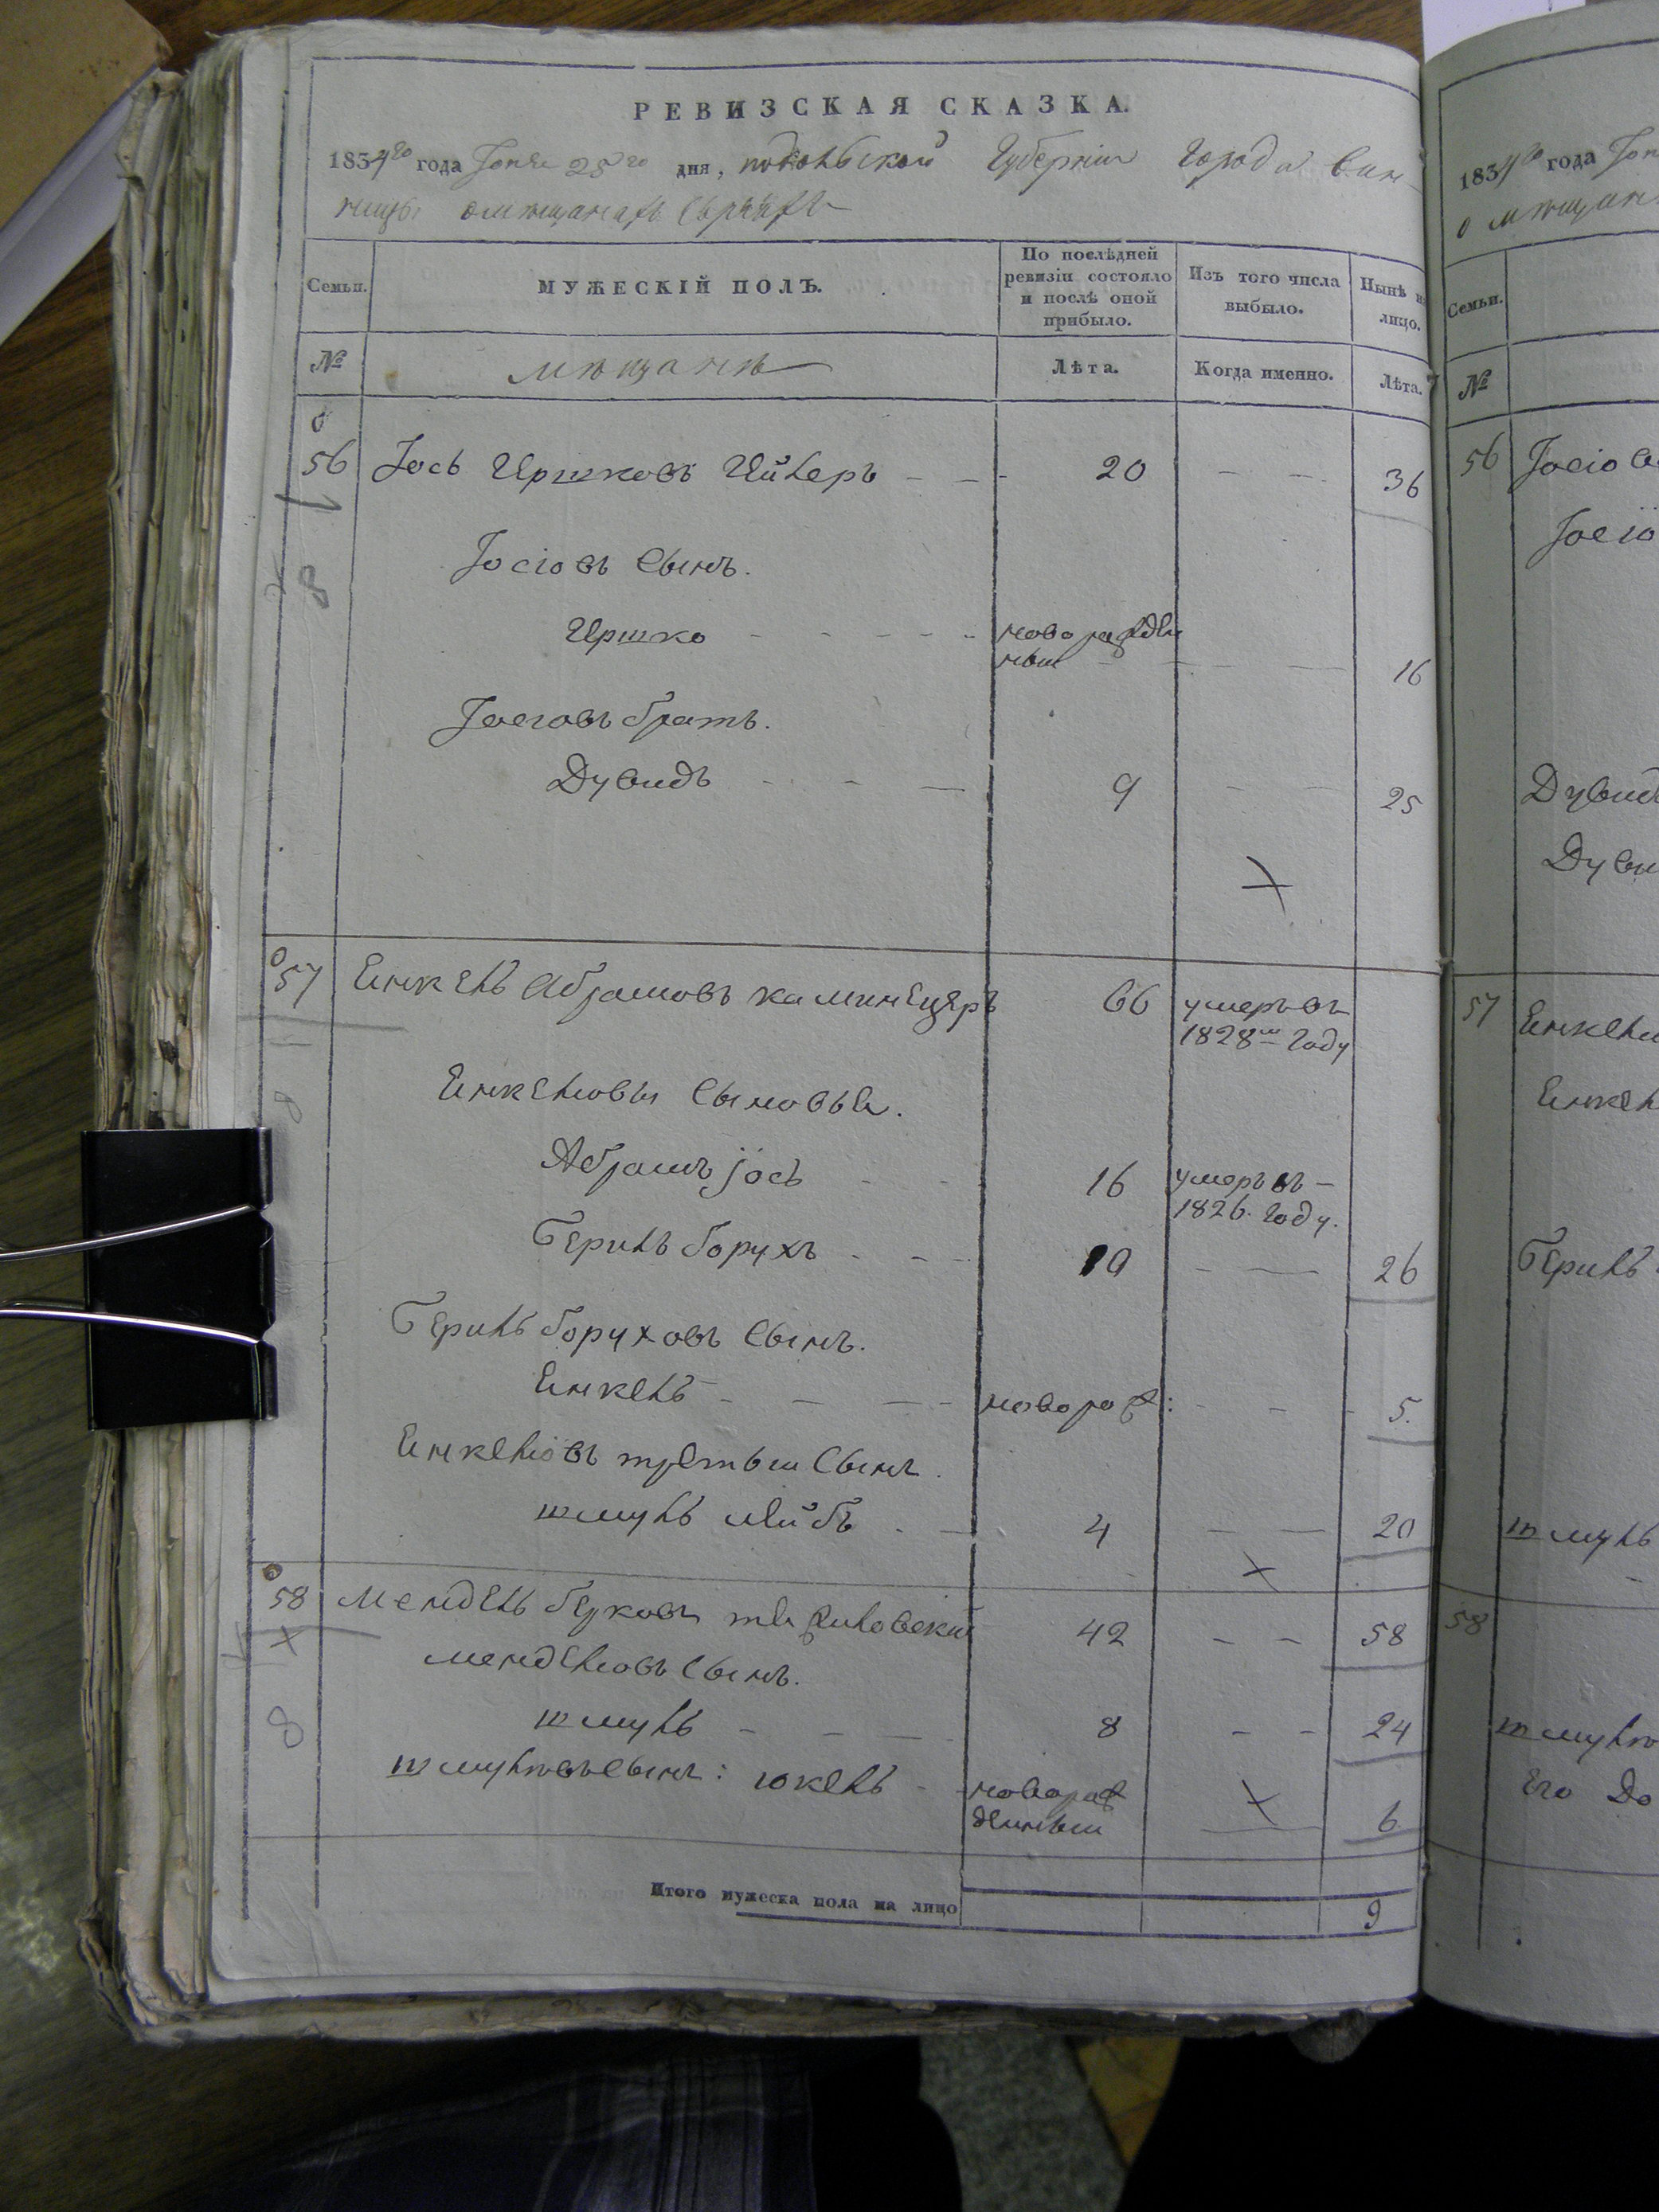 РЕВИЗСКАЯ СКАЗКА.
1834го года Іюня 25го дня, подольской Губерніи Города Вин-
ницы о мѣщанахъ Евреяхъ
Семьи.
МУЖЕСКІЙ ПОЛЪ.
По послѣдней ревизіи состояло и послѣ оной прибыло.
Изъ того числа выбыло.
Нынѣ на лицо.
№
мѣщане
Лѣта.
Когда именно.
Лѣта.
56 Іось Иршковъ 20 36
Іосіовъ Сынъ.
Иршко новорожден
ный 16
Іосіовъ братъ.
Дувидъ 9 25
57 Инкель Абрамовъ каминецеръ 66 умеръ въ
1828м Году
Инкелiовы Сыновья.
Абрамъ іось 16 умеръ въ
1826. Году.
Берилъ борухъ 10 26
Берилъ боруховъ Сынъ.
Инкель новорож: 5.
Инкелiовъ третьи Сынъ
шмуль лейбъ 4 20
58 Мендель берковъ 42 58
менделiовъ Сынъ.
шмуль 8 24
шмулiовъ Сынъ: юкель новорож
денныи 6
Итого мужеска пола на лицо 9
1834го года
о
Семьи.
№
56
Дувид
57
Берилъ
шмуль
58
Его До